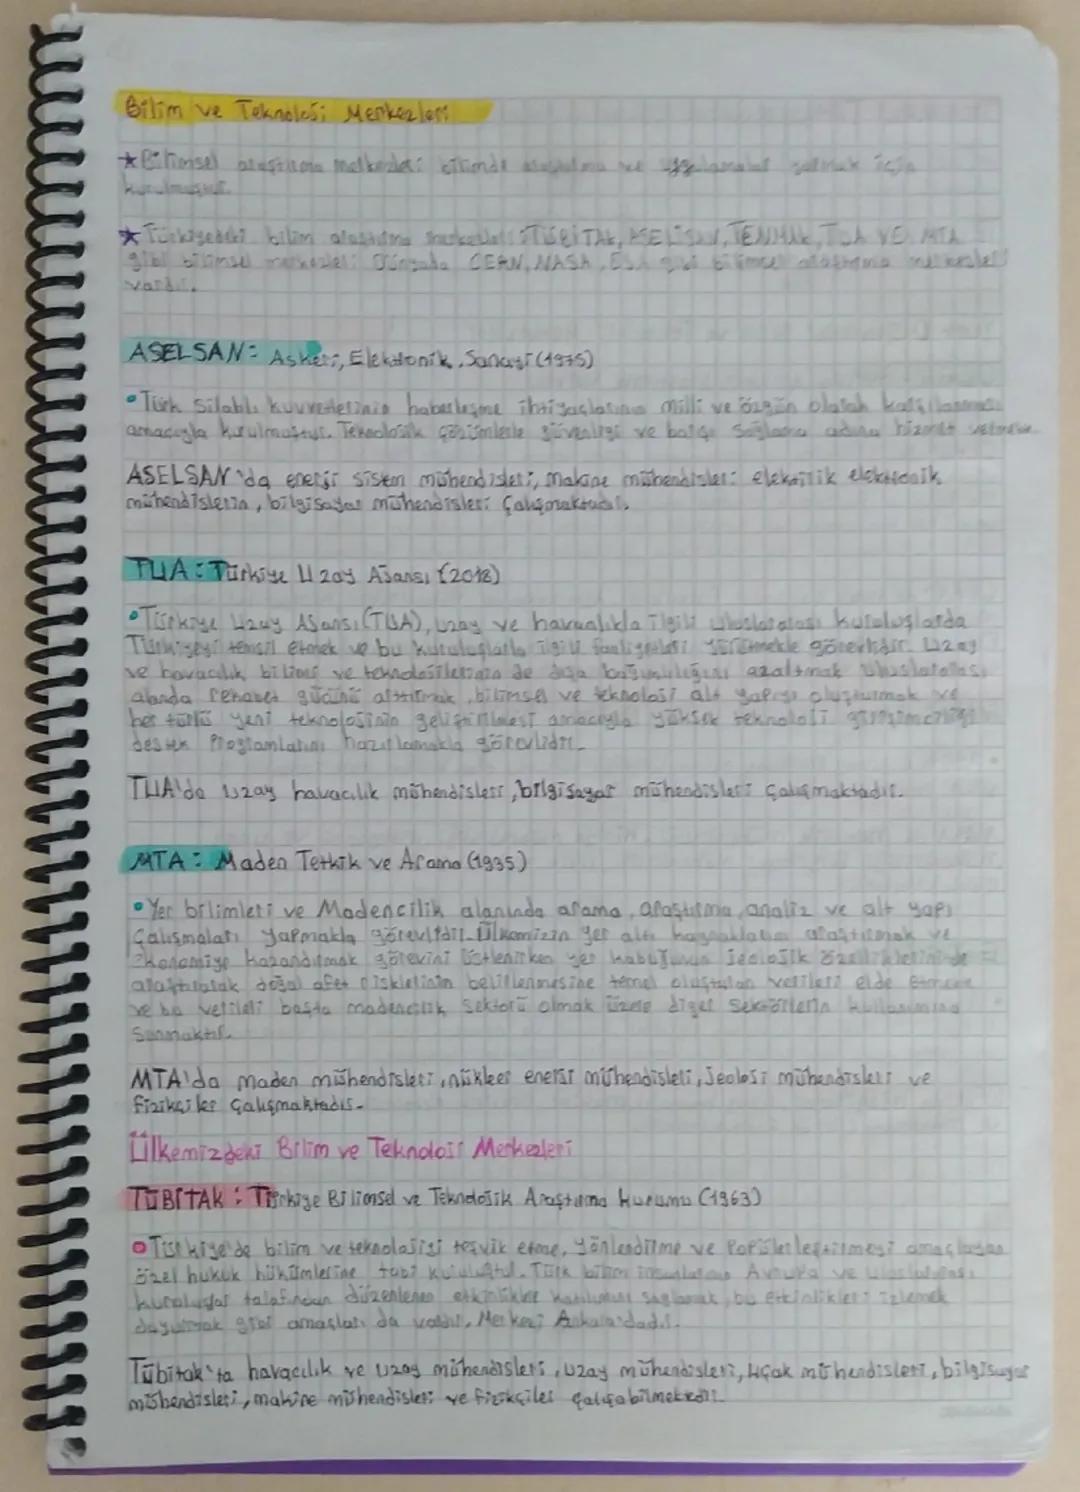 Bilim ve Teknoloji Merkezleri
★ Bilimsel araştırma merkezleri bilimde araştırma ve uygulamalar yapmak için
kurulmuştur.
★ Türkiyedeki bilim araştırma merkezleri: TÜBİTAK, ASELSAN, TENMAK, TUA VE MTA
gibi bilimsel merkezler: Dünyada CERN, NASA, ESA gibi bilimsel araştırma merkezleri
vardır.
ASELSAN: Askeri, Elektronik, Sanayi (1975)
• Türk Silahlı kuvvetlerinin haberleşme ihtiyaçlarının milli ve özgün olarak karşılanması
amacıyla kurulmuştur. Teknolojik çözümlerle güvenliği ve barışı sağlama adına hizmet
ASELSAN'da enerji sistem mühendisleri, makine mühendisleri elektrik elektronik
mühendislerin, bilgisayar mühendisleri çalışmaktadır.
TUA: Türkiye Uzay Ajansı (2018)
• Türkiye Uzay Ajansı (TUA), uzay ve havacılıkla ilgili uluslararası kuruluşlarda
Türkiyeyi temsil etmek ve bu kuruluşlarla ilgili faaliyetleri yürütmekle görevlidir. Uzay
ve havacılık bilimi ve teknolojilerinin de dışa bağımlılığını azaltmak uluslararası
alanda rekabet gücünü arttırmak, bilimsel ve teknoloji alt yapıyı oluşturmak ve
her türlü yeni teknolojinin geliştirilmesi amacıyla yüksek teknoloji girişimciliği
destek Programlarını hazırlamakla görevlidir.
TUA'da uzay havacılık mühendisleri, bilgisayar mühendisleri çalışmaktadır.
MTA: Maden Tetkik ve Arama (1935)
• Yer bilimleri ve Madencilik alanında arama, araştırma, analiz ve alt yapı
çalışmaları yapmakla görevlidir. Ülkemizin yer altı kaynaklarını araştırmak ve
ekonomiye kazandırmak görevini üstlenirken yer kabuğunun jeolojik özelliklerini de
araştırarak doğal afet risklerinin belirlenmesine temel oluşturan verileri elde etmek
ve bu verileri başta madencilik sektörü olmak üzere diğer sektörlerin kullanımına
Sunmaktır.
MTA'da maden mühendisleri, nükleer enerji mühendisleri, jeoloji mühendisleri ve
fizikçiler çalışmaktadır.
Ülkemizdeki Bilim ve Teknoloji Merkezleri
TÜBİTAK: Türkiye Bilimsel ve Teknolojik Araştırma Kurumu (1963)
• Türkiye'de bilim ve teknolojiyi teşvik etme, yönlendirme ve Popülerleştirmeyi amaçlayan
özel hukuk hükümlerine tabi kuruluştur. Türk bilim insanlarının Avrupa ve uluslararası
kuruluşlar tarafından düzenlenen etkinlikler katılımını sağlamak, bu etkinlikleri izlemek
duyurmak gibi amaçları da vardır. Merkezi Ankara'dadır.
Tübitak'ta havacılık ve uzay mühendisleri, uzay mühendisleri, uçak mühendisleri, bilgisayar
mühendisleri, makine mühendisleri ve fizikçiler çalışabilmektedir.